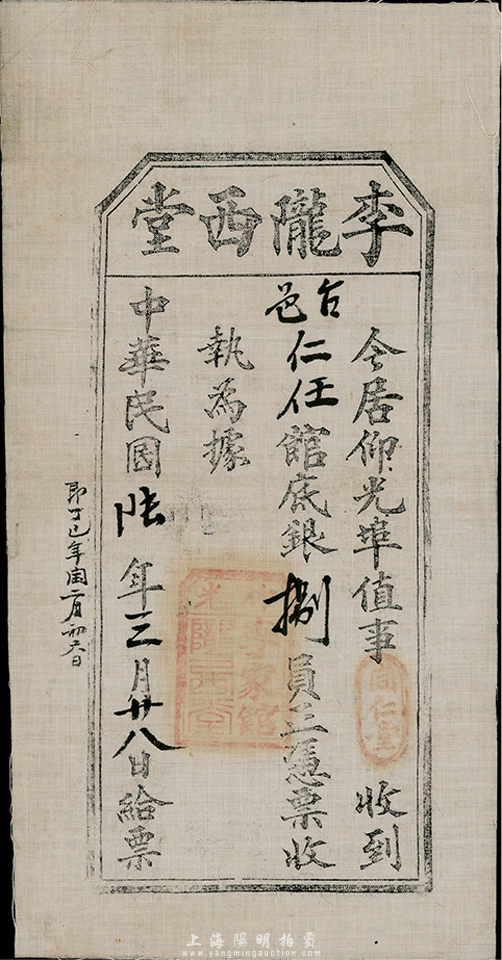 李隴西堂
今居仰光埠值事 同仁堂 收到
台邑仁任館底銀捌員正憑票收
執為據
中華民國陸年三月廿八日給票
即丁巳年閏二月初六日
上海陽明拍賣
www.yangmingauction.com